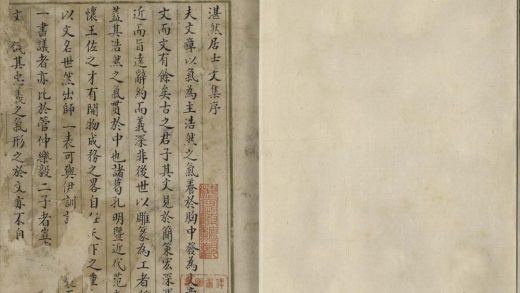 湛然居士文集序
夫文章以氣為主浩然之氣養於胸中發為文
文而文有餘矣古之君子其文見於簡策宏深
近而旨遠辭約而義深非後世以雕篆為工者
蓋其浩然之氣貫於中也諸葛孔明暨近代范
懷王佐之才有開物成務之畧自任天下之重
以文名世然出師一表可與伊訓
一書議者亦比於管仲樂毅二子者豈
文其忠義之氣形之於文亦不自